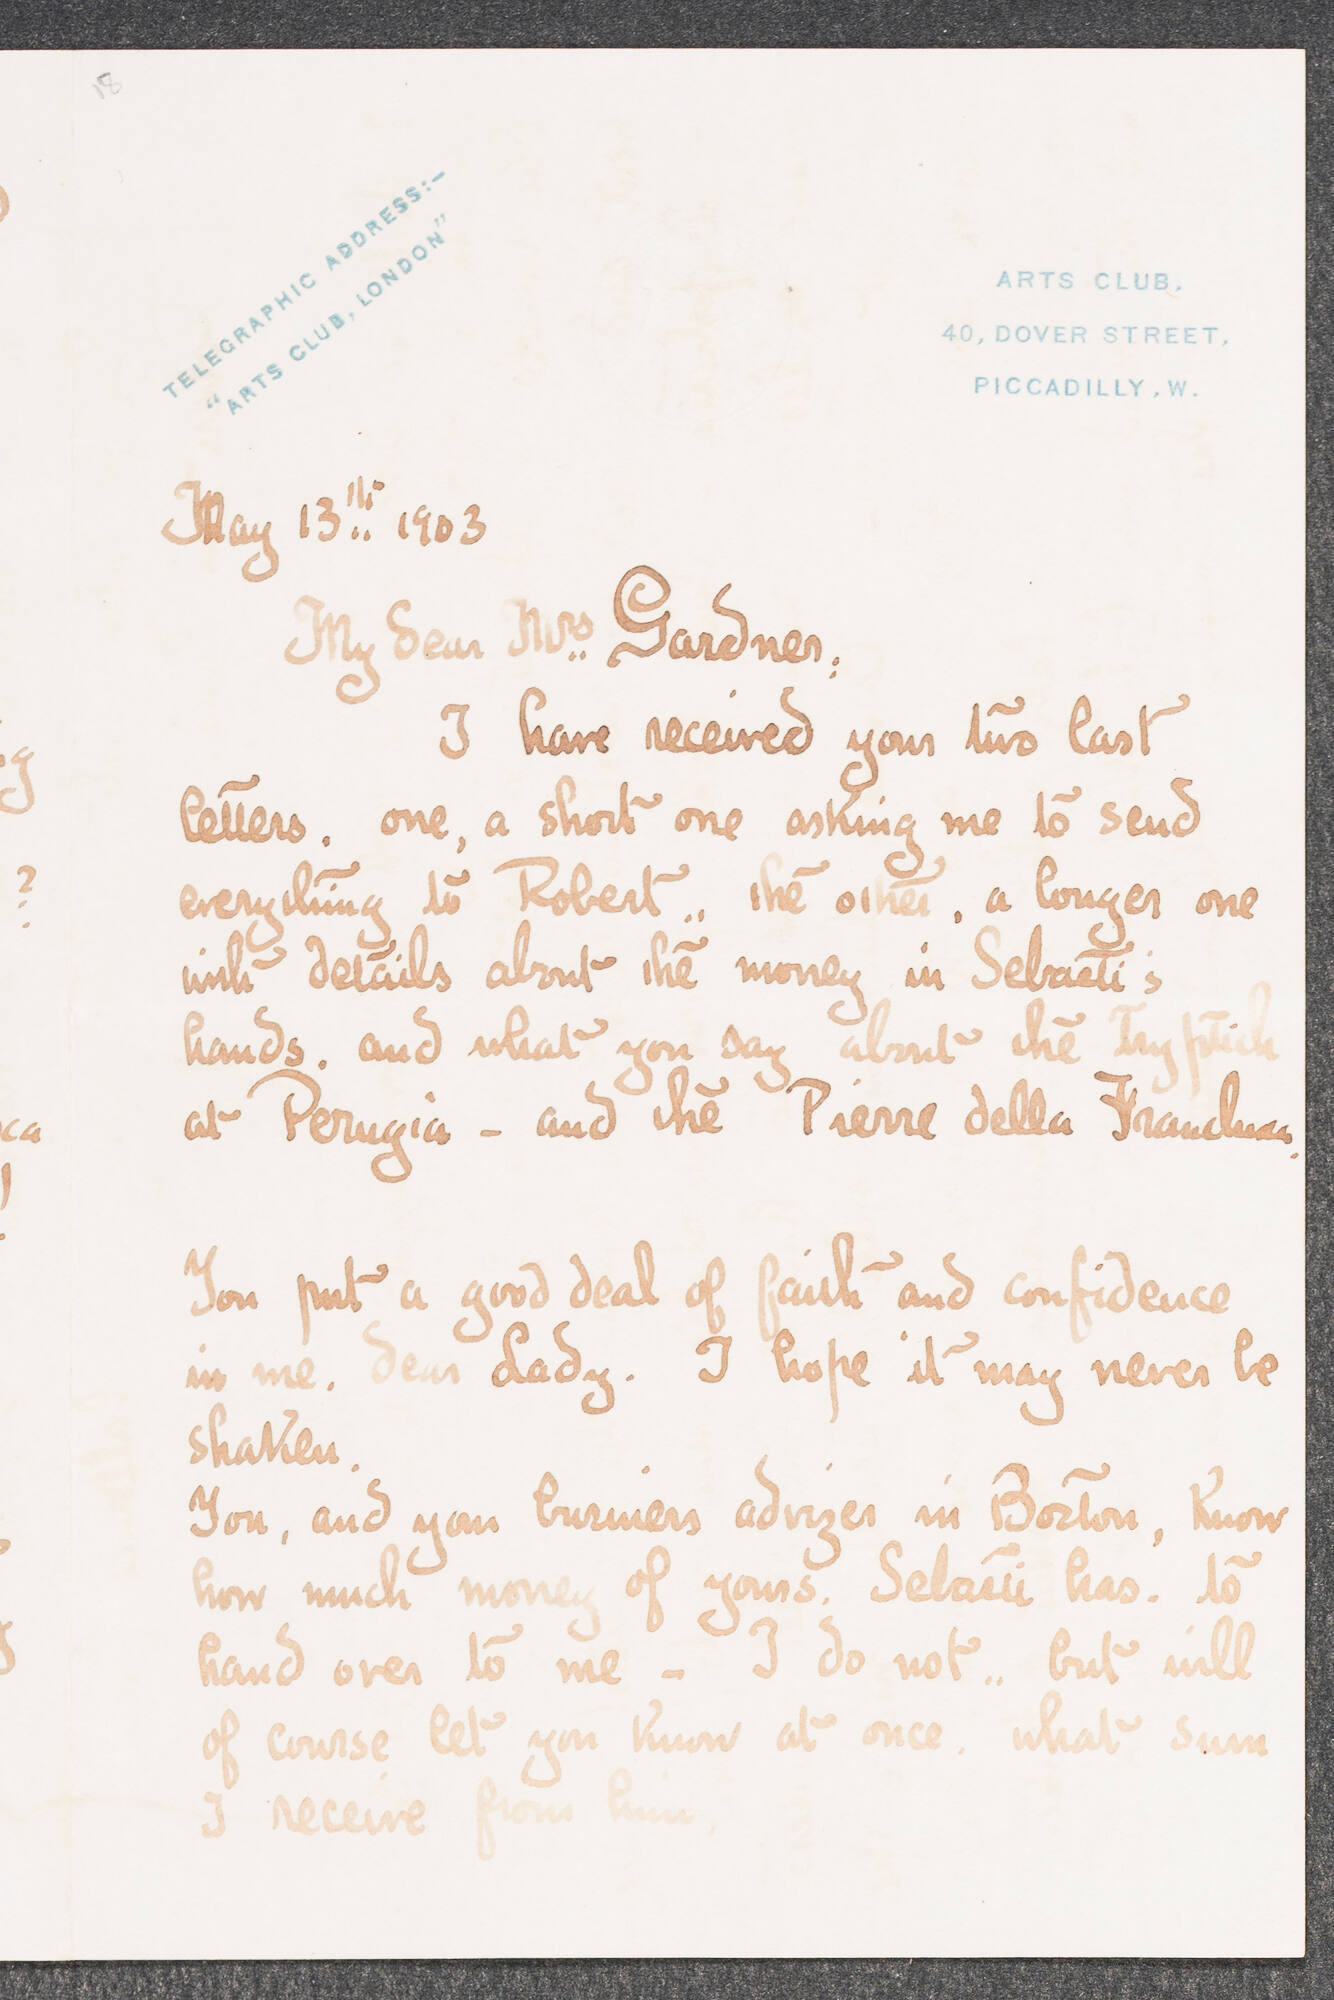 18
TELEGRAPHIC ADDRESS:-
"ARTS CLUB, LONDON"
ARTS CLUB,
40, DOVER STREET,
PICCADILLY, W.
May 13th 1903
My dear Mrs Gardner,
I have received your two last
letters. one, a short one asking me to send
everything to Robert.. the other, a longer one
with details about the money in Sebasti's
hands. and what you say about the Tryptich
at Perugia - and the Pierre della
You put a good deal of faith and confidence
in me. dear Lady. I hope it may never be
shaken.
You, and your business advizer in Boston, know
how much money of yours. Sebasti has. to
hand over to me - I do not.. but will
of course let you know at once. what sum
I receive from him.